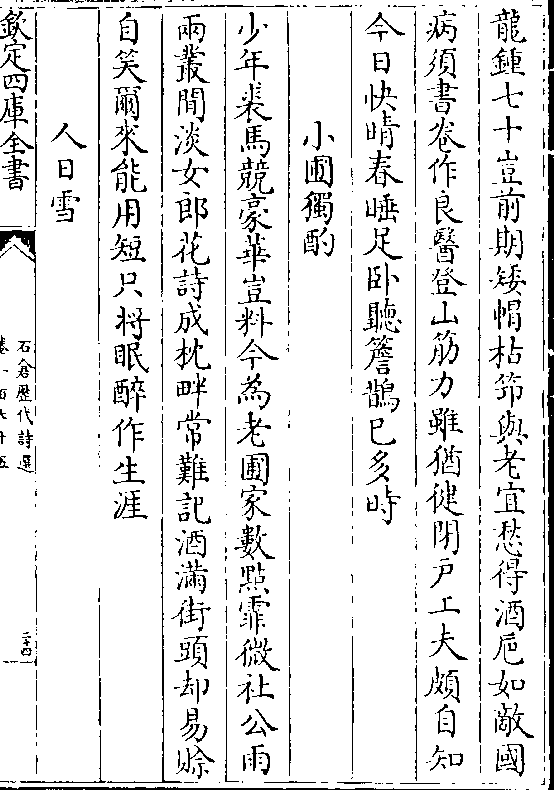 龍鍾七十豈前期矮帽枯笻與老宜愁得酒巵如敵國
病須書卷作良醫登山筋力雖猶健閉戸工夫頗自知
今日快晴春睡足卧聽簷鵲已多時
小圃獨酌
少年裘馬競豪華豈料今為老圃家數點霏微社公雨
兩叢閒淡女郎花詩成枕畔常難記酒滿街頭却易賒
自笑爾來能用短只将眠醉作生涯
人日雪
欽定四庫全書
石倉歴代詩選
二十四